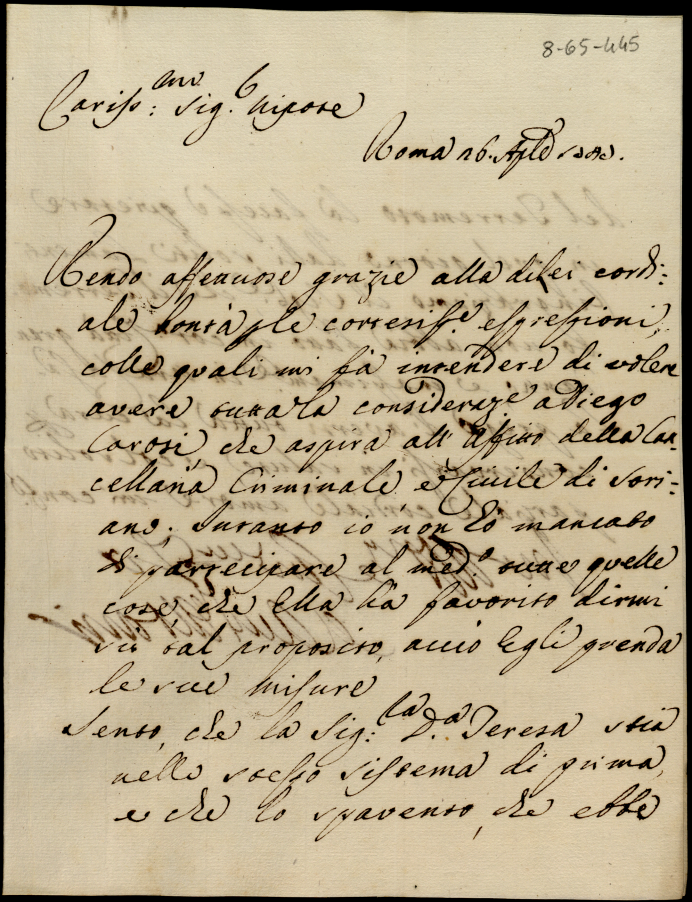 8-65-445
Cariss:mo Sig.r Nipote
Roma 26. Aple
Rendo affettuose grazie alla di lei cordi:
ale bontà, ple cortesisse. espressioni,
colle quali mi fà intendere di volere
avere tutta la considerazẽ a Diego
Carosi, che aspira all' Affitto della Can-
cellaria Criminale, e Civile di Sori-
ano; Intanto io non hò mancato
di partecipare al medo. tutte quelle
cose che Ella hà favorito dirmi
sù tal proposito, acciò Egli prenda
le sue misure
Sento, che la Sig:ra D.a Teresa stia
nello stesso sistema di prima,
e che lo spavento, che ebbe